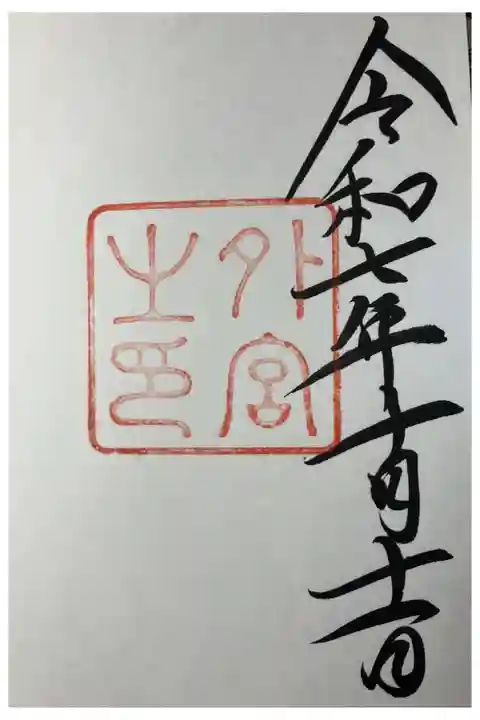 令和七年十月十一日
外宮
之印